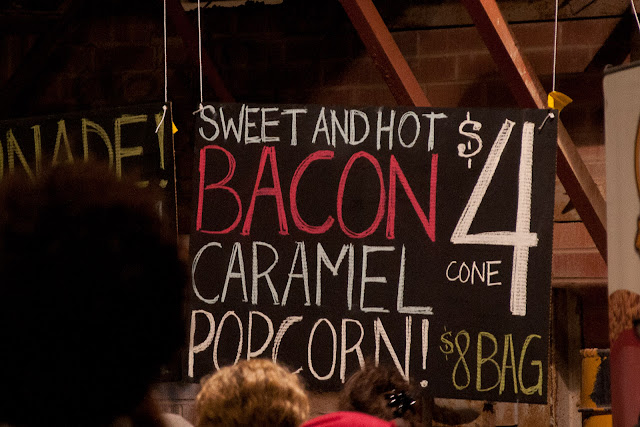 NADE!
SWEET AND HOT
BACON
CARAMEL
POPCORN!
$4
CONE
$8 BAG